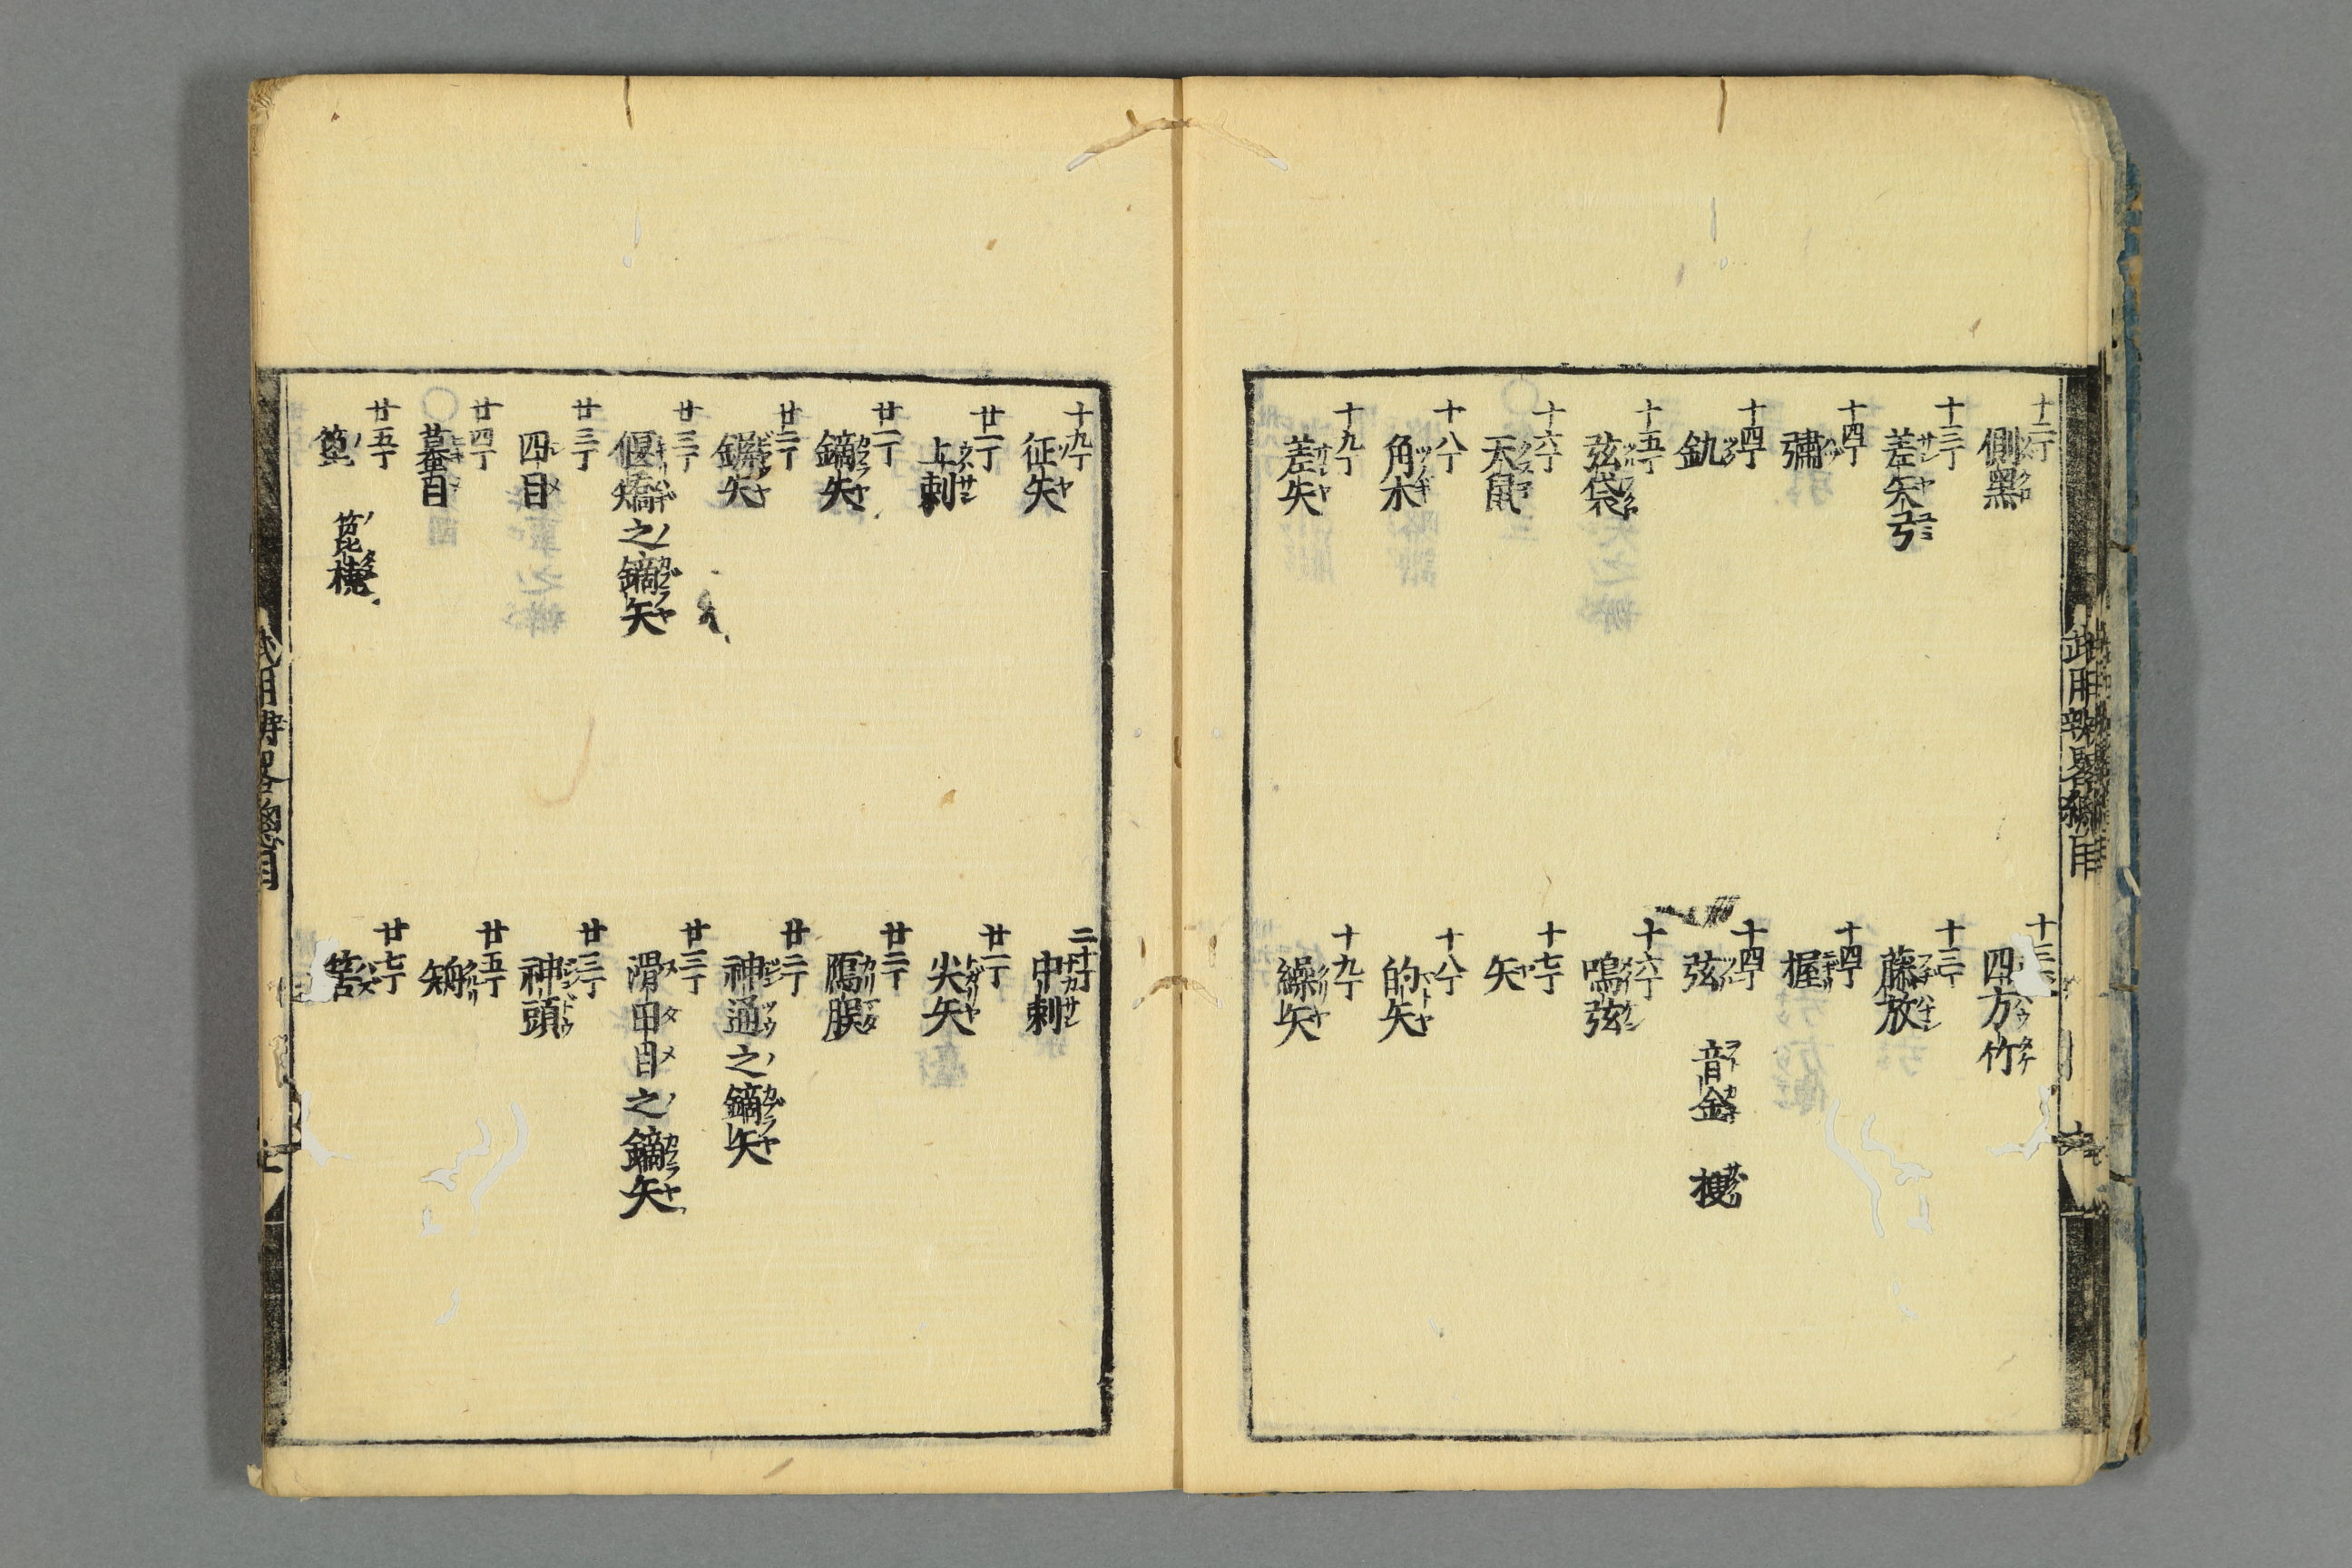 武用辨畧總目
十二丁 側黑
四方竹
十三丁 差矢弓
十三丁 藤放
十四丁 彇
十四丁 握
十四丁 釚
十四丁 弦 音金
十五丁 弦袋
十六丁 鳴弦
十六丁 天鼠
十七丁 矢
十八丁 角木
十八丁 的矢
十九丁 差矢
十九丁 繰矢
十九丁 征矢
二十丁 中刺
廿一丁 上刺
廿一丁 尖矢
廿二丁 鏑矢
廿二丁 鴈股
廿二丁
廿二丁 神通之鏑矢
廿三丁 偃矯之鏑矢
廿三丁 滑田目之鏑矢
廿三丁 四目
廿三丁 神頭
廿四丁 蟇目
廿五丁
廿五丁
廿七丁 筈